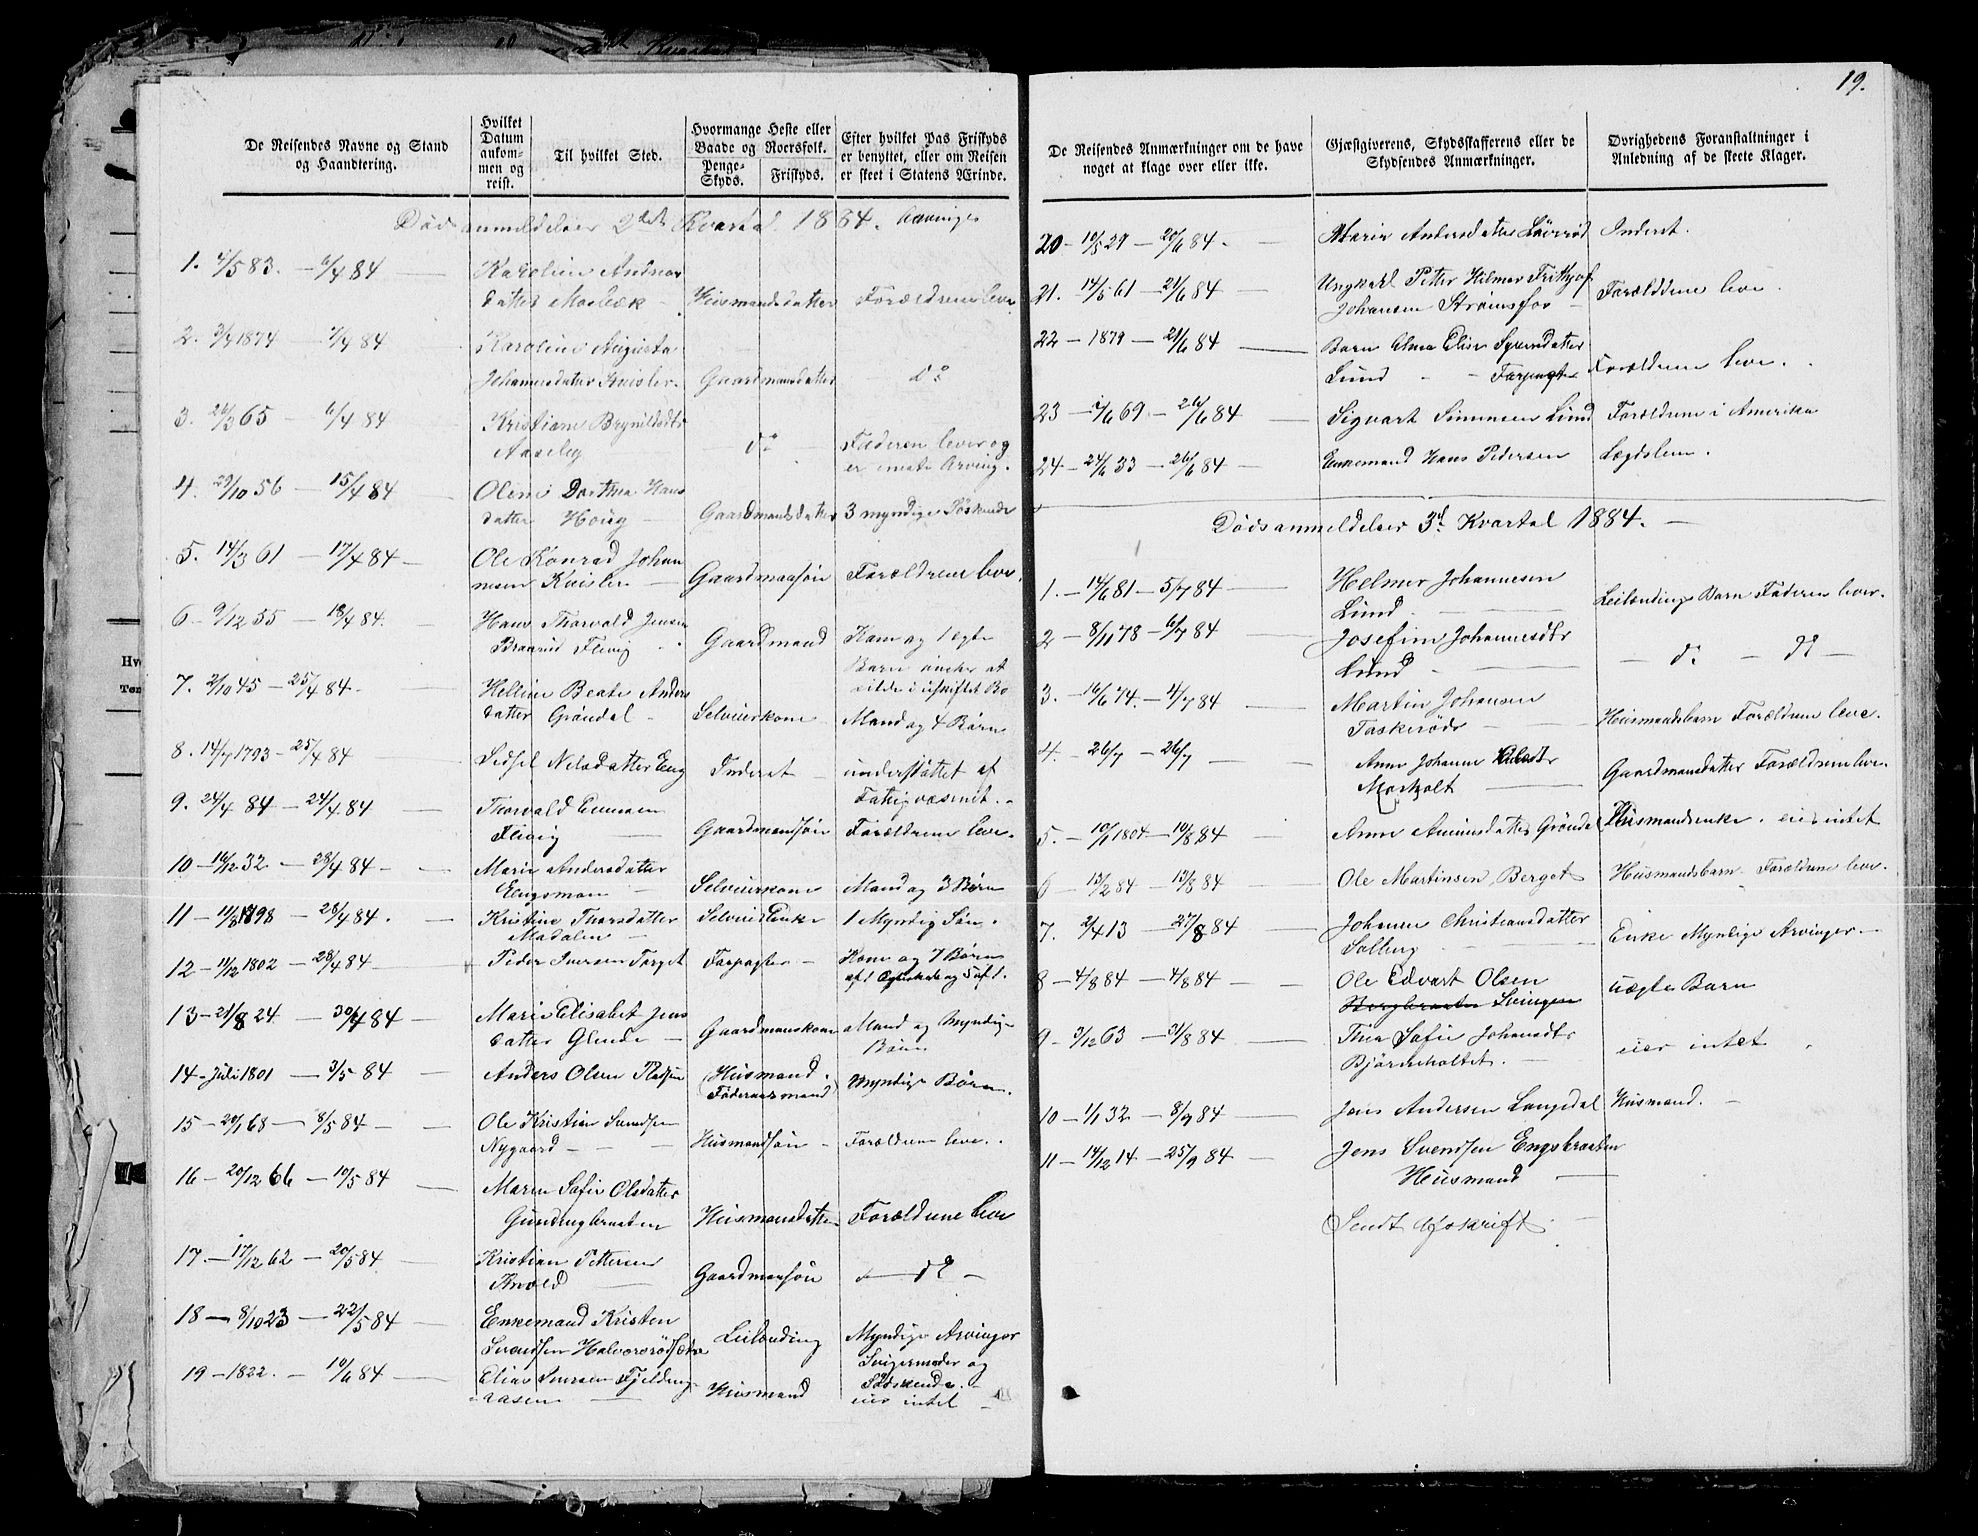 19.
De Reisendes Navne og Stand
og Haandtering.
Hvilket
Datum
ankom-
men og
reist.
Til hvilket Sted.
Hvormange Heste eller
Baade og Roersfolk.
Penge-
Skyds.
Friskyds.
Efter hvilket Pas Friskyds
er benyttet, eller om Reisen
er skeet i Statens Ærinde.
Dødsanmeldelser 2det Kvartal 1884.
1. 4/5 83. — 6/4 84 — Karoline Andreas
datter Mosbæk — Husmandsdatter Forældrene leve
2. 3/7 1874 — 7/4 84 Karoline Augusta
Johannesdatter Knisler. Gaardmansdatter do
3. 26/3 65 — 6/4 84 — Kristiane Brynildsdtr
Aaseby — do — Faderen lever og
er eneste Arving.
4. 29/10 56 — 15/4 84 — Oleni Dorthea Hans
datter Houg — Gaardmandsdatter 3 myndige Søskende
5. 14/3 61 — 17/4 84 — Ole Konrad Johan
nesen Knisler — Gaardmansøn Forældrene leve.
6 9/12 55 — 18/4 84. Hans Thorvald Jensen
Braarud Flivig Gaardmand Kone og 1 ægte
Barn ønsker at
sidde i uskiftet Bo
7. 2/10 45 — 25/4 84. — Helline Beate Anders
datter Grøndal — Selveierkone — Mand og 4 Børn
8. 14/7 1793 — 25/4 84 Sidsel Nelsdatter Eng Inderst — understøttet af
Fattigvæsenet.
9. 24/4 84 — 24/4 84 — Thorvald Evensen
Flivig — Gaardmandsøn Forældrene leve.
10 — 16/12 32. — 28/4 84. — Marie Andersdatter
Engsmoen — Selveierkone Mand og 3 Børn
11 — 11/8 1798 — 28/4 84. — Kristine Thorsdatter
Madalen — Selveier Enke 1 Myndig Søn.
12 — 11/12 1802 — 28/4 84 — Peder Iversen Torget Forpagter — Kone og 7 Børn
13 — 21/8 24 — 30/4 84 — Marie Elisabet Jens
datter Glende — Gaardmanskone Mand og Myndige
Børn
14 — Juli 1801 — 3/5 84 — Anders Olsen Pladsen (Husmand.
Føderaadsmand) Myndige Børn.
15 — 20/1 68 — 8/5 84 — Ole Kristian Svendsen
Nygaard — — Husmandsøn — Forældrene leve.
16 — 20/12 66 — 10/5 84 — Maren Sofie Olsdatter
Gundingbraaten Husmansdatter Forældrene leve
17. — 17/12 62 — 20/5 84. Kristian Pettersen
Knold — Gaardmansøn — do —
18 — 8/10 23 — 22/5 84 — Enkemand Kristen
Svendsen Halvorsrød Leilænding Myndige Arvinger
19 — 1822. — 10/6 84 — Elias Iversen Fjelding
aasen — Husmand Svigermoder og
Søskende.
eier intet
De Reisendes Anmærkninger om de have
noget at klage over eller ikke.
Gjæstgiverens, Skydsskafferens eller de
Skydsendes Anmærkninger.
Øvrighedens Foranstaltninger i
Anledning af de skeete Klager.
20 — 10/5 29 — 20/6 84. — Marie Andersdatter Lærrød Inderst.
21. — 14/5 61 — 21/6 84 — Ungkarl Petter Hilmer Frithjof
Johansen Strømsfor — Forældrene leve.
22 — 1879 — 21/6 84 — Barn Elma Elise Syversdatter
Lund — — Forpagter Forældrene leve.
23 — 1/6 69 — 26/6 84 Sigvart Simensen Lund Forældrene i Amerika
24 — 24/6 33 — 26/6 84 — Enkemand Hans Pedersen Lægdslem.
Dødsanmeldelser 3d Kvartal 1884. —
1. — 14/6 81 — 5/7 84 — Helmer Johannesen
Lund — Leilændings Barn Faderen lever.
2 — 8/11 78 — 6/7 84 Josefine Johannesdtr
Lund — — do — do —
3. — 16/6 74. — 4/7 84 — Martin Johansen
Taskerød — Husmandsbarn Forældrene leve.
4. — 26/7 — 26/7 — Anne Johanne
Morkolt — Gaardmansdatter Forældrene leve.
5. — 10/1 1804 — 10/8 84 — Anne Amundsdatter Grøndal Husmandsenke. eier intet
6 — 13/2 84 — 13/8 84 — Ole Martinsen Berget Husmandsbarn Forældrene leve.
7. 2/4 13 — 27/8 84 — Johanne Christiansdatter
Solberg — Enke Myndige Arvinger —
8 — 4/8 84 — 4/8 84. — Ole Edvart Olsen
Bergbraaten Svingen uægte Barn
9 — 3/12 63 — 31/8 84. — Thea Sofie Johansdtr
Bjørneholtet. — eier intet
10 — 1/1 32 — 8/9 84 — Jens Andersen Langedal Husmand. —
11 — 14/12 14 — 25/9 84 — Jens Svendsen Engebraaten
Husmand —
Sendt Afskrift. —